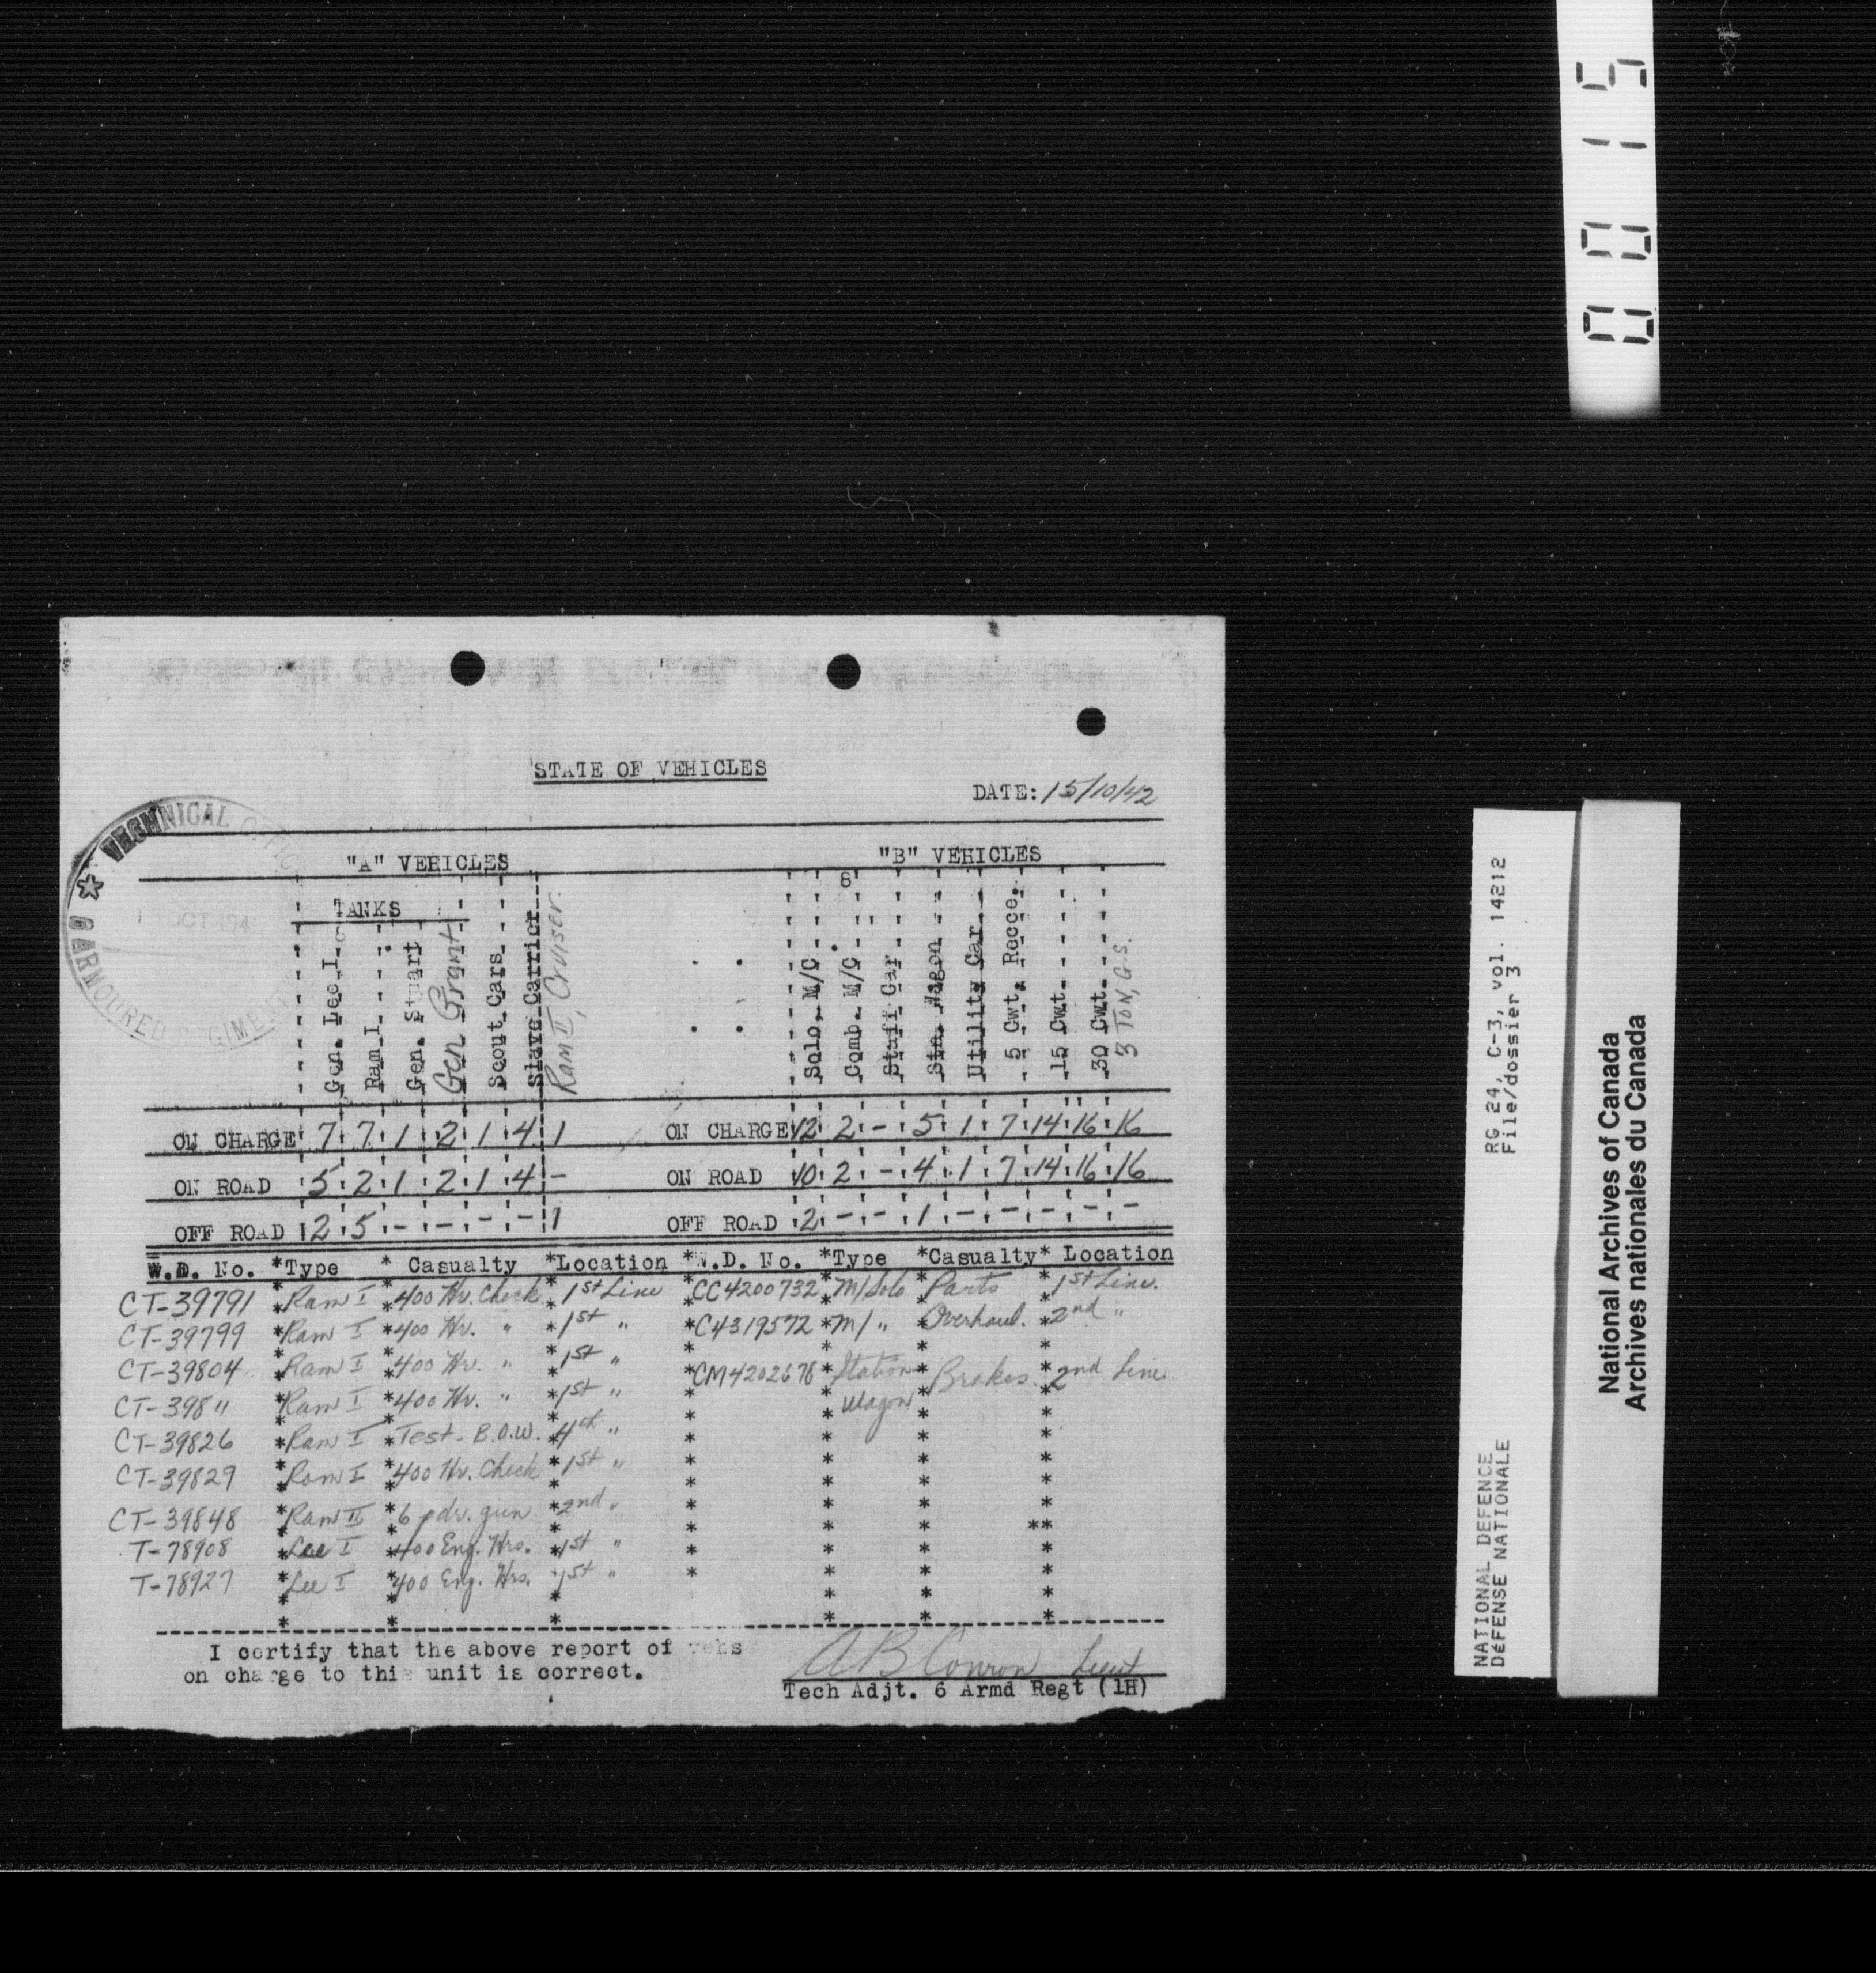 0015
STATE OF VEHICLES
DATE: 15/10/42
TECHNICAL
OCT 194
6 ARMOURED REGIMENT
"A" VEHICLES
"B" VEHICLES
8
TANKS
Gen. Lee I
Ram I
Gen. Stuart
Gen Grant
Scout Cars
Slave Carrier
Ram II, Cruiser
Solo, M/C
Comb. M/C
Staff Car
Stn. Wagon
Utility Car
5 Cwt. Recce.
15 Cwt.
30 Cwt.
3 TON, G.S.
ON CHARGE 7 7 1 2 1 4 1 ON CHARGE 12 2 - 5 1 7 14 16 16
ON ROAD 5 2 1 2 1 4 - ON ROAD 10 2 - 4 1 7 14 16 16
OFF ROAD 2 5 - - - - 1 OFF ROAD 2 - - 1 - - - - -
W.D. No. *Type * Casualty *Location *W.D. No. *Type *Casualty* Location
CT-39791 Ram I 400 Hr. Check 1st Line CC4200732 M/Solo Parts 1st Line.
CT-39799 Ram I 400 Hr. " 1st " C4319572 M/ " Overhaul. 2nd "
CT-39804 Ram I 400 Hr. " 1st " CM4202678 Station Brakes. 2nd Line
CT-398 11 Ram I 400 Hr. " 1st " Wagon
CT-39826 Ram I Test. B.O.W. 4th "
CT-39829 Ram I 400 Hr. Check 1st "
CT-39848 Ram II 6 pdr. gun 2nd "
T-78908 Lee I 400 Eng. Hrs. 1st "
T-78927 Lee I 400 Eng. Hrs. 1st "
I certify that the above report of vehs
on charge to this unit is correct.
AB Conron Lieut
Tech Adjt. 6 Armd Regt (1H)
NATIONAL DEFENCE RG 24, C-3, vol. 14212
DéFENSE NATIONALE File/dossier 3
National Archives of Canada
Archives nationales du Canada